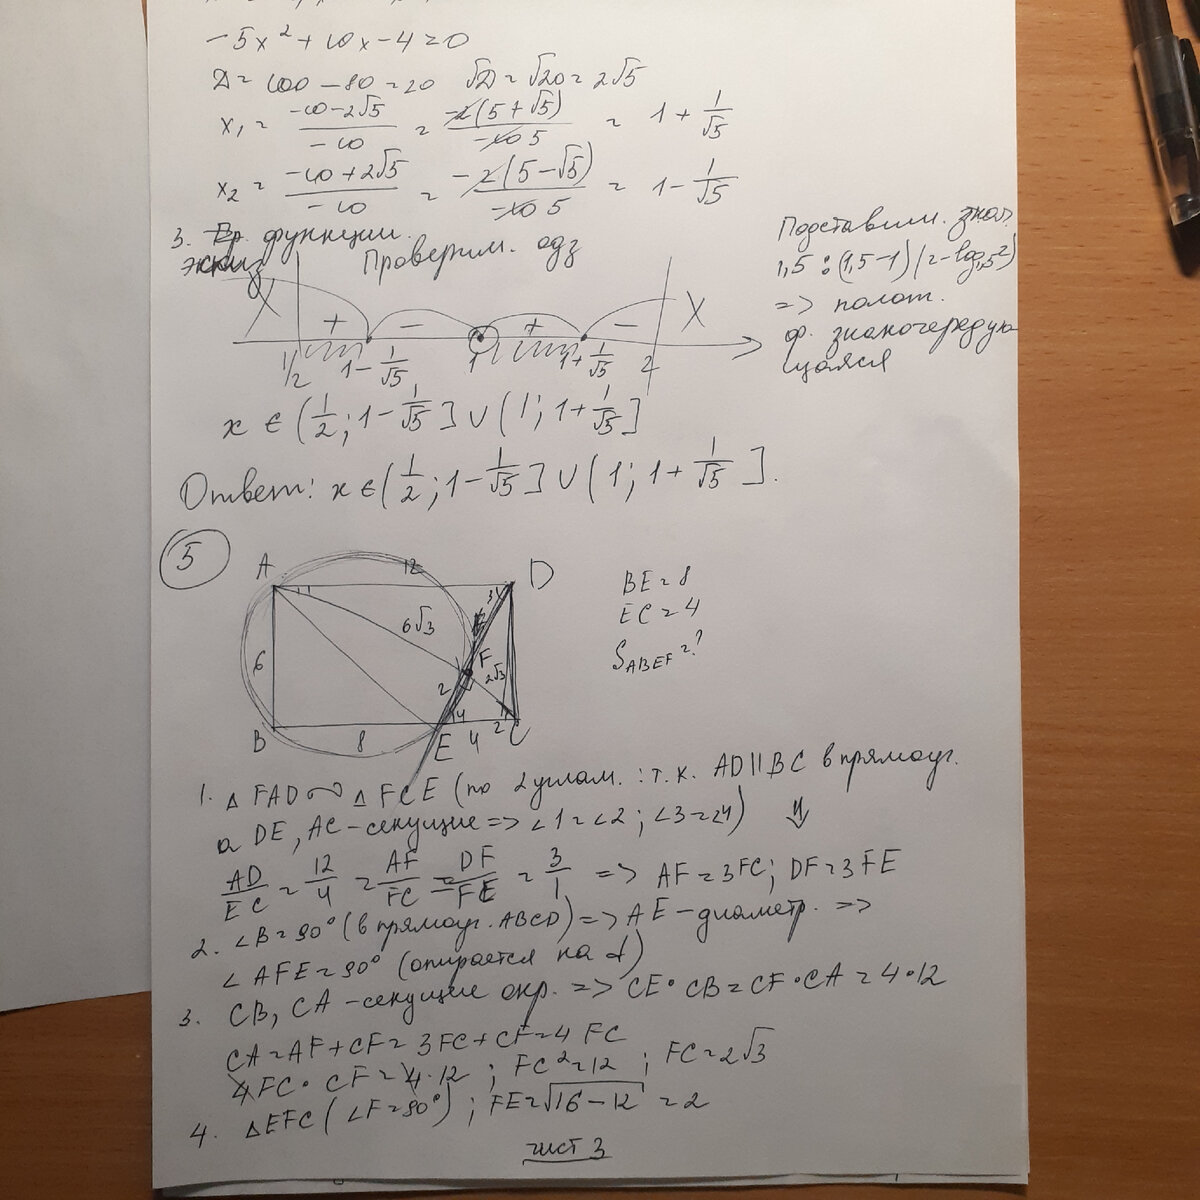 -5x² + 10x - 4 = 0
D = 100 - 80 = 20   √D = √20 = 2√5
x₁ = (-10 - 2√5)/(-10) = (-2(5 + √5))/(-10 5) = 1 + 1/√5
x₂ = (-10 + 2√5)/(-10) = (-2(5 - √5))/(-10 5) = 1 - 1/√5
3. функции.
эскиз
Проверим. одз
+ - + -
1/2   1 - 1/√5   1   1 + 1/√5   2
X
Подставим.
1,5 : (1,5-1)(2-log₁,₅2)
=> полож.
ф. знакочередую
щаяся
x ∈ (1/2; 1 - 1/√5] ∪ (1; 1 + 1/√5]
Ответ: x ∈ (1/2; 1 - 1/√5] ∪ (1; 1 + 1/√5].
5
A 12 D
6√3
3
F
6
2 2√3
4 2
B 8 E 4 C
BE = 8
EC = 4
S ABEF = ?
1. △FAD ∾ △FCE (по 2 углам. : т.к. AD || BC в прямоуг.
а DE, AC - секущие => ∠1 = ∠2; ∠3 = ∠4) ⇓
AD/EC = 12/4 = AF/FC = DF/FE = 3/1 => AF = 3FC; DF = 3FE
2. ∠B = 90° (в прямоуг. ABCD) => AE - диаметр. =>
∠AFE = 90° (опирается на d)
3. CB, CA - секущие окр. => CE · CB = CF · CA = 4 · 12
CA = AF + CF = 3FC + CF = 4 FC
4FC · CF = 4 · 12 ; FC² = 12 ; FC = 2√3
4. △EFC (∠F = 90°) ; FE = √(16 - 12) = 2
лист 3